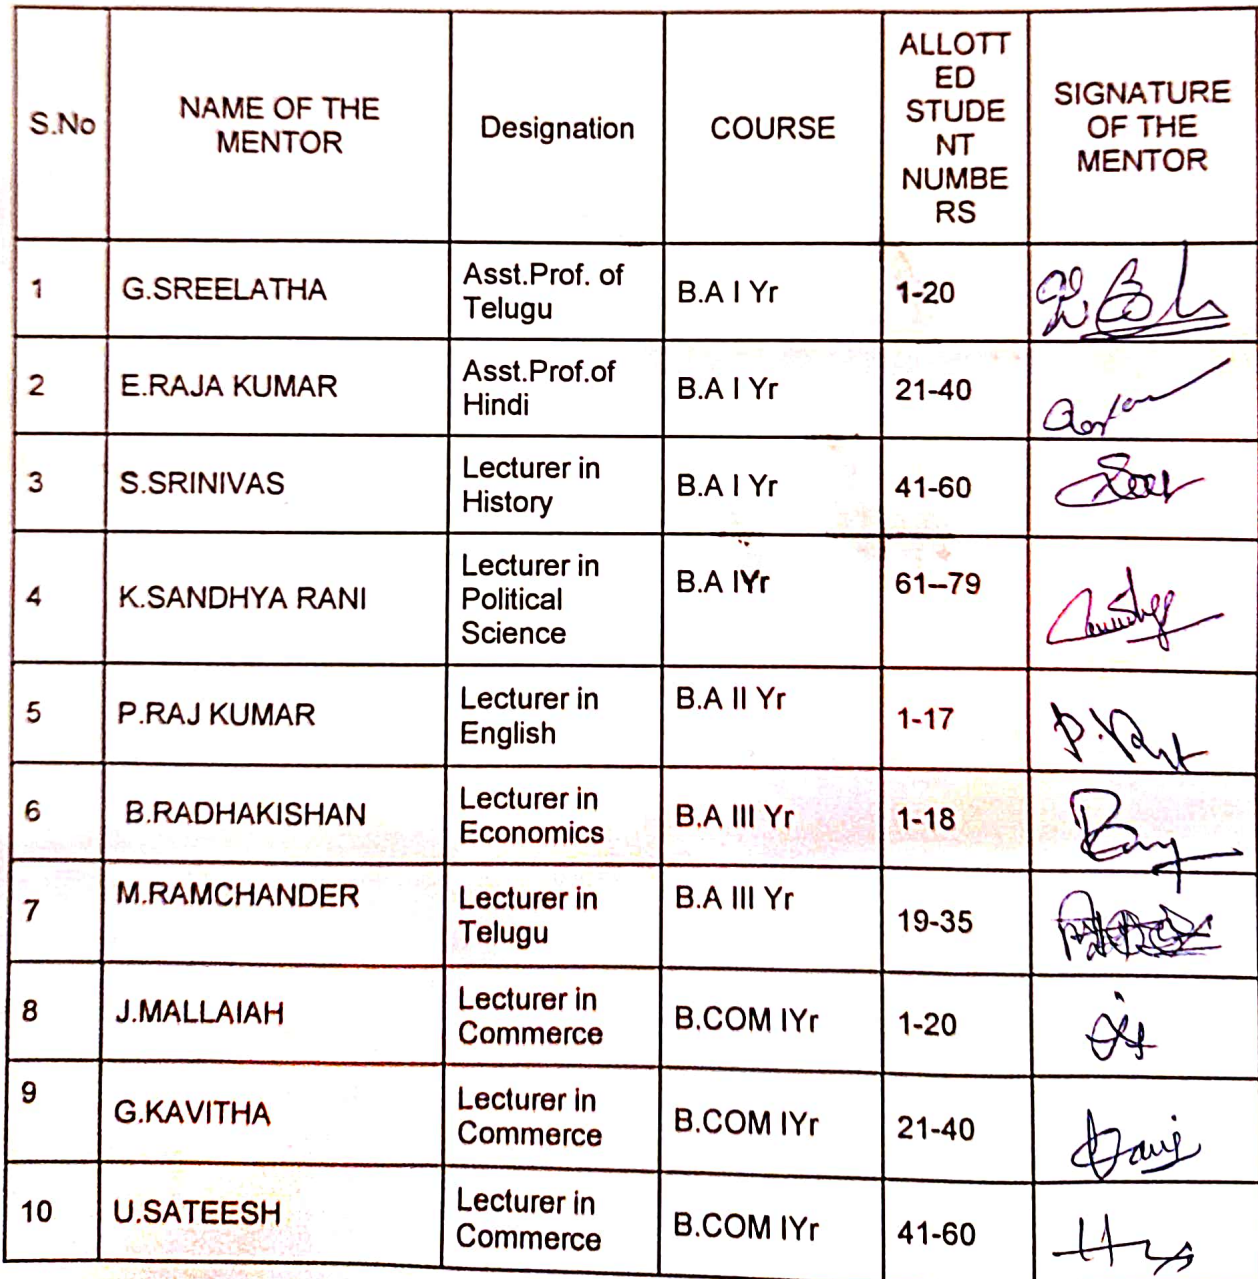 S.No NAME OF THE MENTOR Designation COURSE ALLOTT ED STUDE NT NUMBE RS SIGNATURE OF THE MENTOR
1 G.SREELATHA Asst.Prof. of Telugu B.A I Yr 1-20
2 E.RAJA KUMAR Asst.Prof.of Hindi B.A I Yr 21-40
3 S.SRINIVAS Lecturer in History B.A I Yr 41-60
4 K.SANDHYA RANI Lecturer in Political Science B.A IYr 61--79
5 P.RAJ KUMAR Lecturer in English B.A II Yr 1-17
6 B.RADHAKISHAN Lecturer in Economics B.A III Yr 1-18
7 M.RAMCHANDER Lecturer in Telugu B.A III Yr 19-35
8 J.MALLAIAH Lecturer in Commerce B.COM IYr 1-20
9 G.KAVITHA Lecturer in Commerce B.COM IYr 21-40
10 U.SATEESH Lecturer in Commerce B.COM IYr 41-60